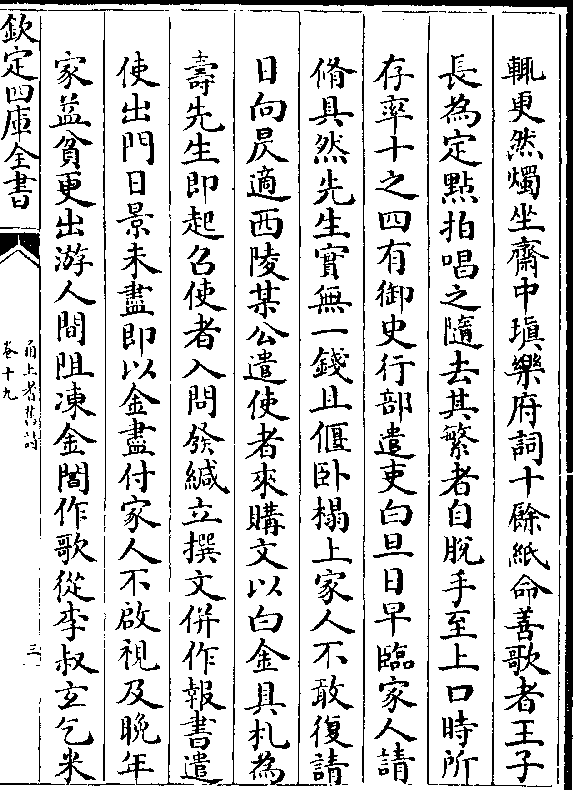 輒更然燭坐齋中瑱樂府詞十餘紙命善歌者王子
長為定點拍唱之隨去其繁者自脫手至上口時所
存率十之四有御史行部遣吏白旦日早臨家人請
脩具然先生實無一錢且偃卧榻上家人不敢復請
日向昃適西陵某公遣使者來購文以白金具札為
壽先生即起召使者入問發緘立撰文併作報書遣
使出門日景未盡即以金盡付家人不啟視及晚年
家益貧更出游人間阻凍金閶作歌從李叔玄乞米
欽定四庫全書
甬上耆舊詩
卷十九
三